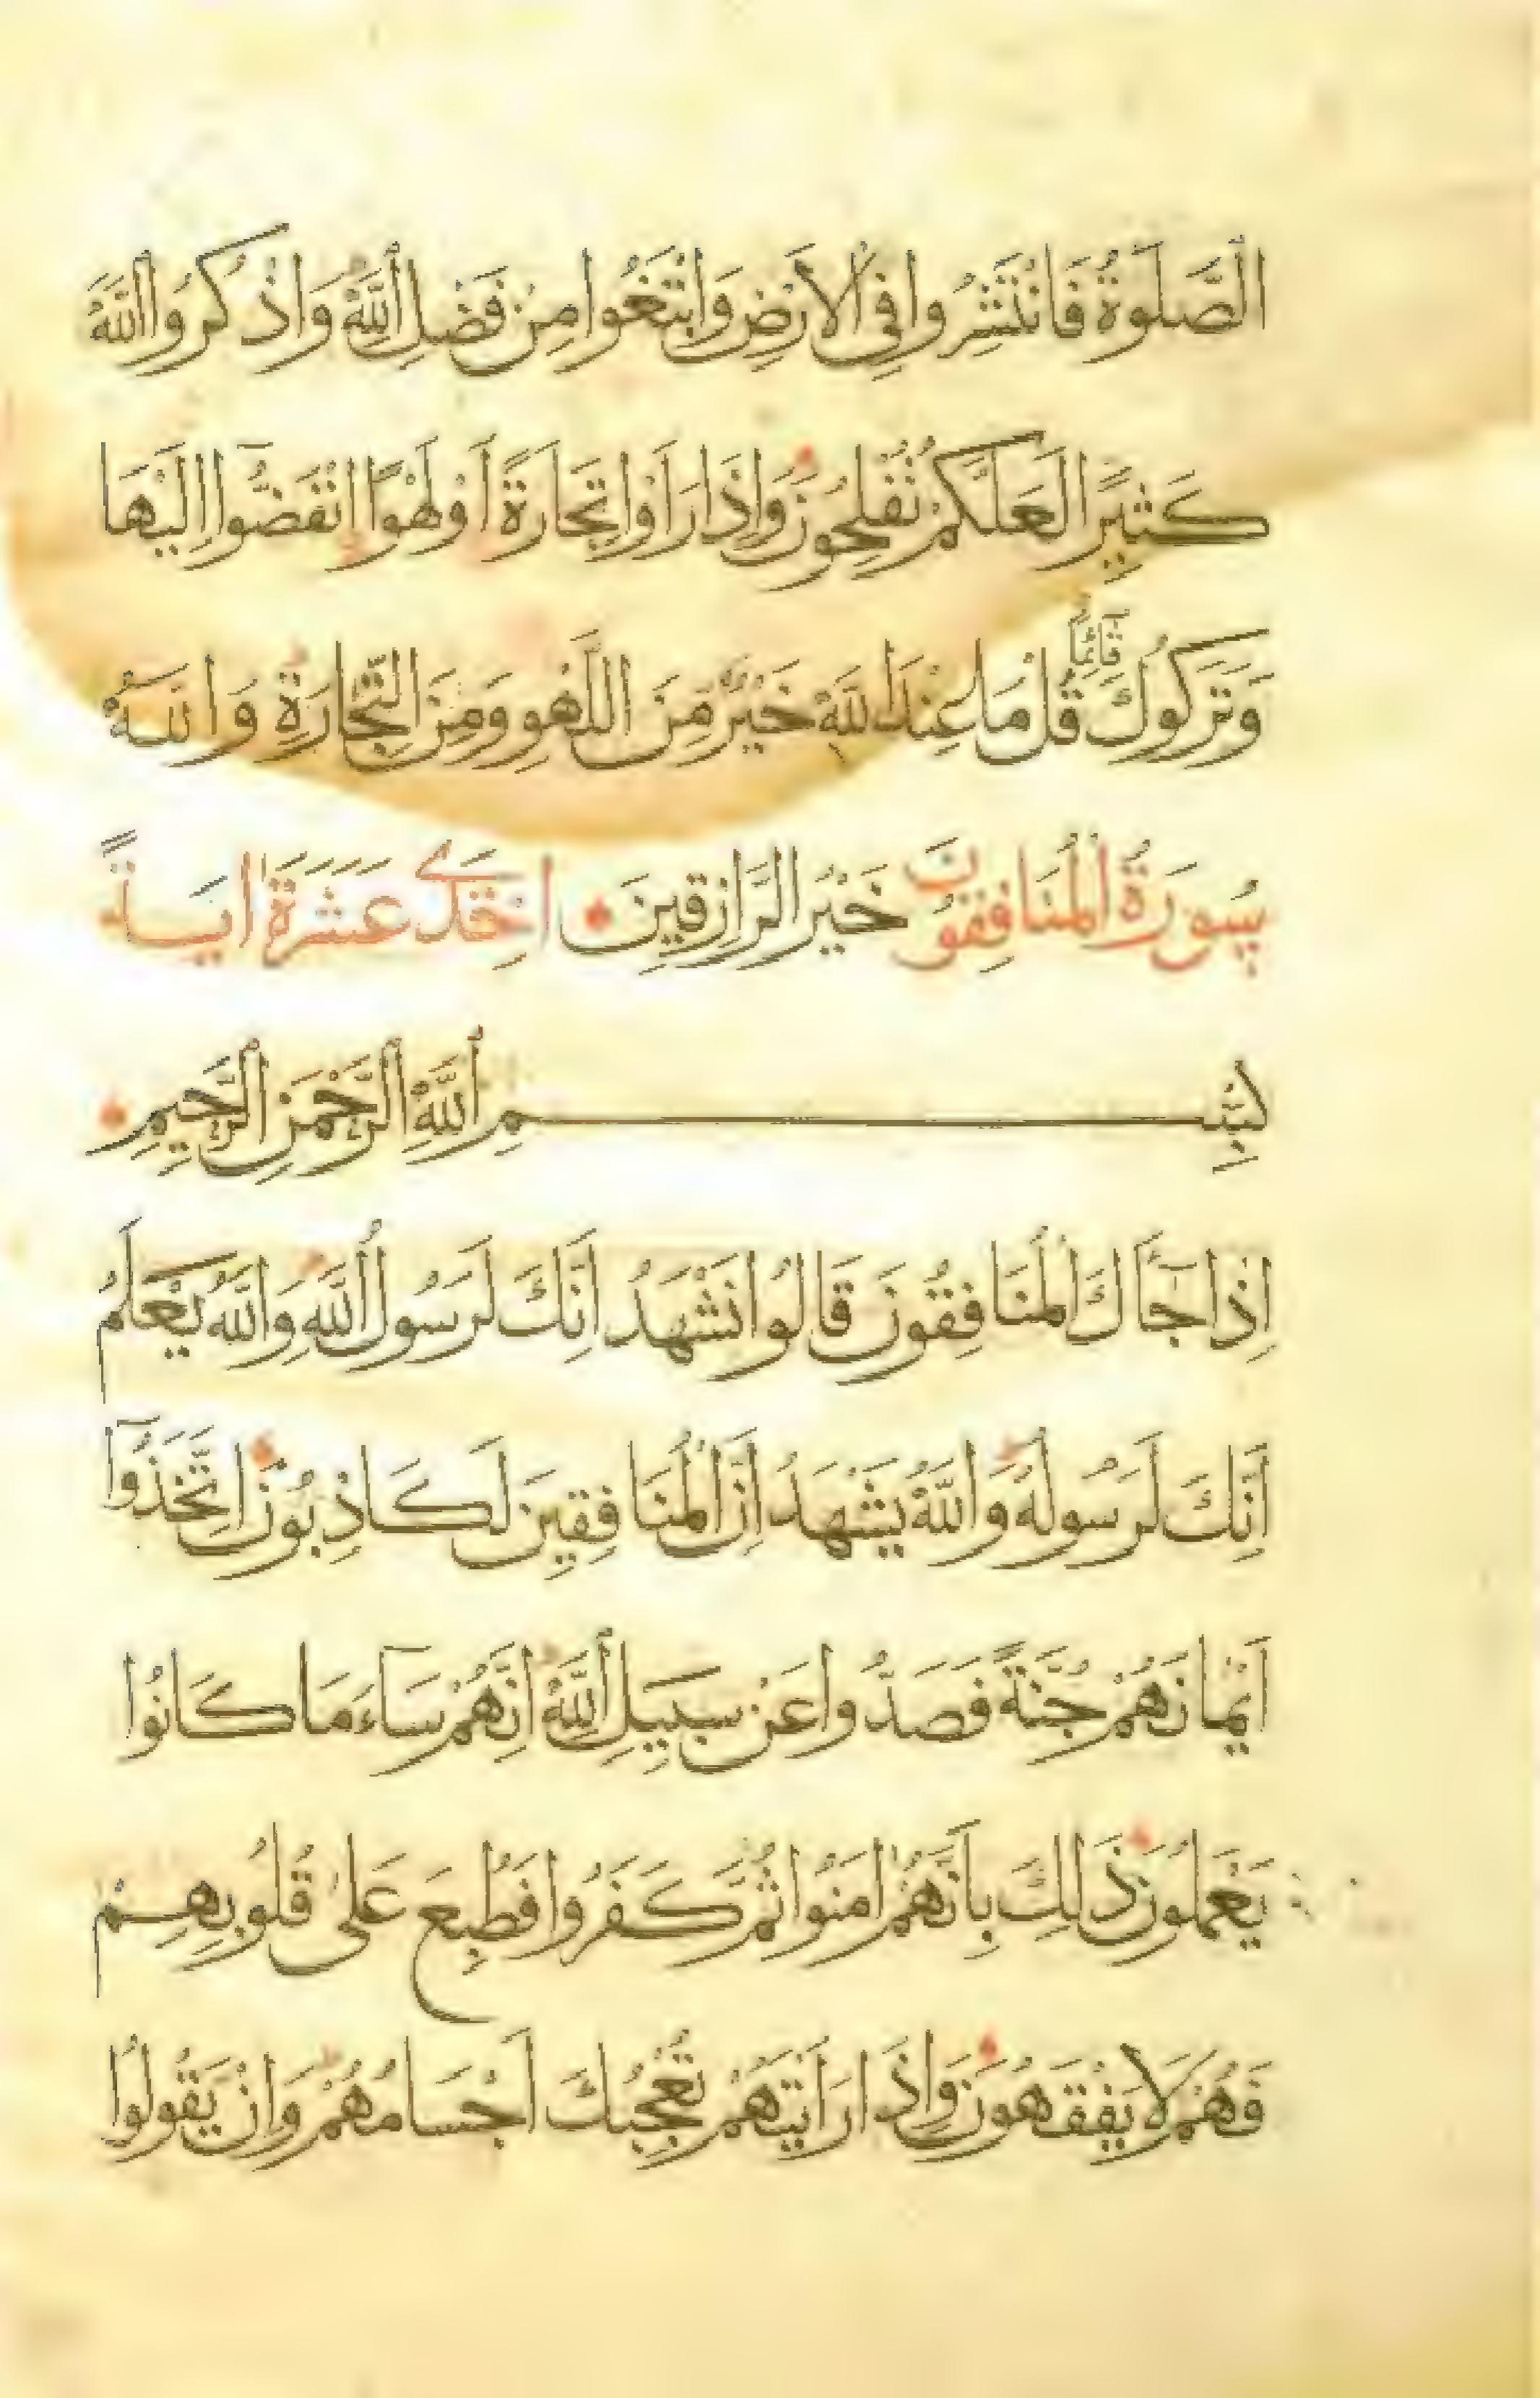 الصَّلٰوةُ فَانْتَشِرُوا فِي الْاَرْضِ وَابْتَغُوا مِنْ فَضْلِ اللّٰهِ وَاذْكُرُوا اللّٰهَ
كَثِيرًا لَعَلَّكُمْ تُفْلِحُونَ وَاِذَا رَاَوْا تِجَارَةً اَوْ لَهْوًا انْفَضُّوا اِلَيْهَا
وَتَرَكُوكَ قَائِمًا قُلْ مَا عِنْدَ اللّٰهِ خَيْرٌ مِنَ اللَّهْوِ وَمِنَ التِّجَارَةِ وَاللّٰهُ
سُورَةُ الْمُنَافِقُونَ خَيْرُ الرَّازِقِينَ اِحْدَى عَشَرَةَ اٰيَةً
بِسْمِ اللّٰهِ الرَّحْمٰنِ الرَّحِيمِ
اِذَا جَاءَكَ الْمُنَافِقُونَ قَالُوا نَشْهَدُ اِنَّكَ لَرَسُولُ اللّٰهِ وَاللّٰهُ يَعْلَمُ
اِنَّكَ لَرَسُولُهُ وَاللّٰهُ يَشْهَدُ اِنَّ الْمُنَافِقِينَ لَكَاذِبُونَ اِتَّخَذُوا
اَيْمَانَهُمْ جُنَّةً فَصَدُّوا عَنْ سَبِيلِ اللّٰهِ اِنَّهُمْ سَاءَ مَا كَانُوا
يَعْمَلُونَ ذٰلِكَ بِاَنَّهُمْ اٰمَنُوا ثُمَّ كَفَرُوا فَطُبِعَ عَلٰى قُلُوبِهِمْ
فَهُمْ لَا يَفْقَهُونَ وَاِذَا رَاَيْتَهُمْ تُعْجِبُكَ اَجْسَامُهُمْ وَاِنْ يَقُولُوا